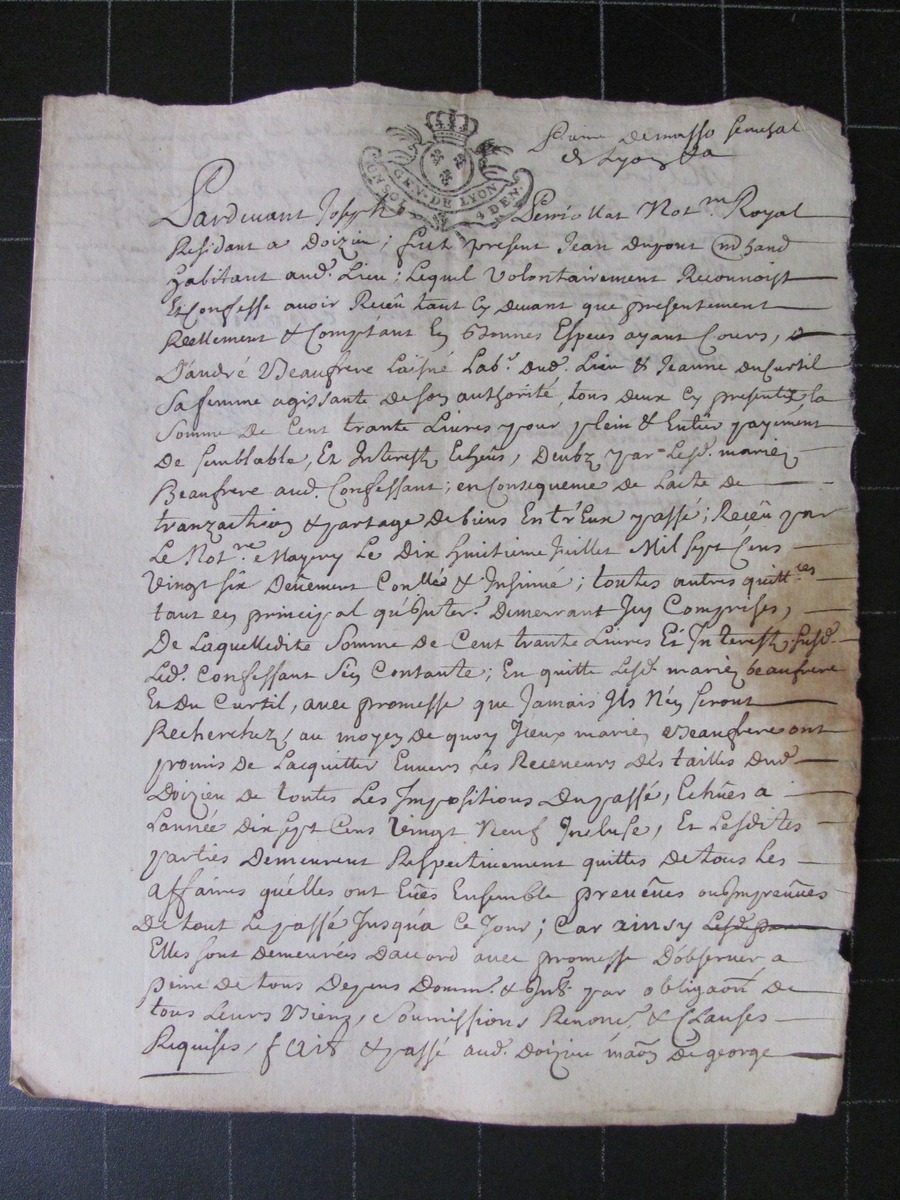 GEN. DE LYON
UN SOL 4 DEN.
de Lyon
Pardevant Joseph Perriollat Not.re Royal
Residant a Doizieu; fut present Jean dupont mchand
habitant aud. Lieu; Lequel Volontairement Reconnoist
Et Confesse avoir Receu tant Cy devant que presentement
Reellement & Comptant En bonnes Especes ayant Cours,
D'andré Beaufrere Laisné Lab.r dud. Lieu & Jeanne du Curtil
sa femme agissante de son authorité, tous deux Cy presentz, la
Somme De Cent trante Livres pour plein & Entier payement
De semblable, Et Interestz Echeus, Deubz par Lesd. mariez
Beaufrere aud. Confessant; en Consequence de Lacte de
tranzaction & partage de biens Entr'Eux passé; Receu par
Le Not.re Mayery Le Dix huitieme Juillet Mil sept Cens
Vingt six Deüement Con.llé & Insinué; toutes autres quitt.ces
tant en principal qu'Inter.t Demeurant Icy Comprises,
De Laquelledite Somme de Cent trante Livres Et Interestz susd.
Led. Confessant s'En Contante; En quitte Lesd. mariez beaufrere
Et Du Curtil, avec promesse que Jamais Ils N'En seront
Recherchez; au moyen de quoy Iceux mariez Beaufrere ont
promis de Lacquitter Envers Les Receveurs des tailles dud.
Doizieu de toutes Les Impositions du passé, Echües a
Lannée dix sept Cens Vingt Neuf Incluse, Et Lesdites
parties Demeurent Respectivement quittes de tous Les
affaires qu'elles ont Eües Ensemble preveües ou Impreveües
De tout Le passé Jusqu'a Ce Jour; Car ainsy
Elles sont demeurées Daccord avec promesse D'observer a
peine de tous Depens Domm. & Int. par obligaon de
tous Leurs Biens, Soumissions Renonc. & Clauses
Requises, fait & passé aud. Doizieu maon de george